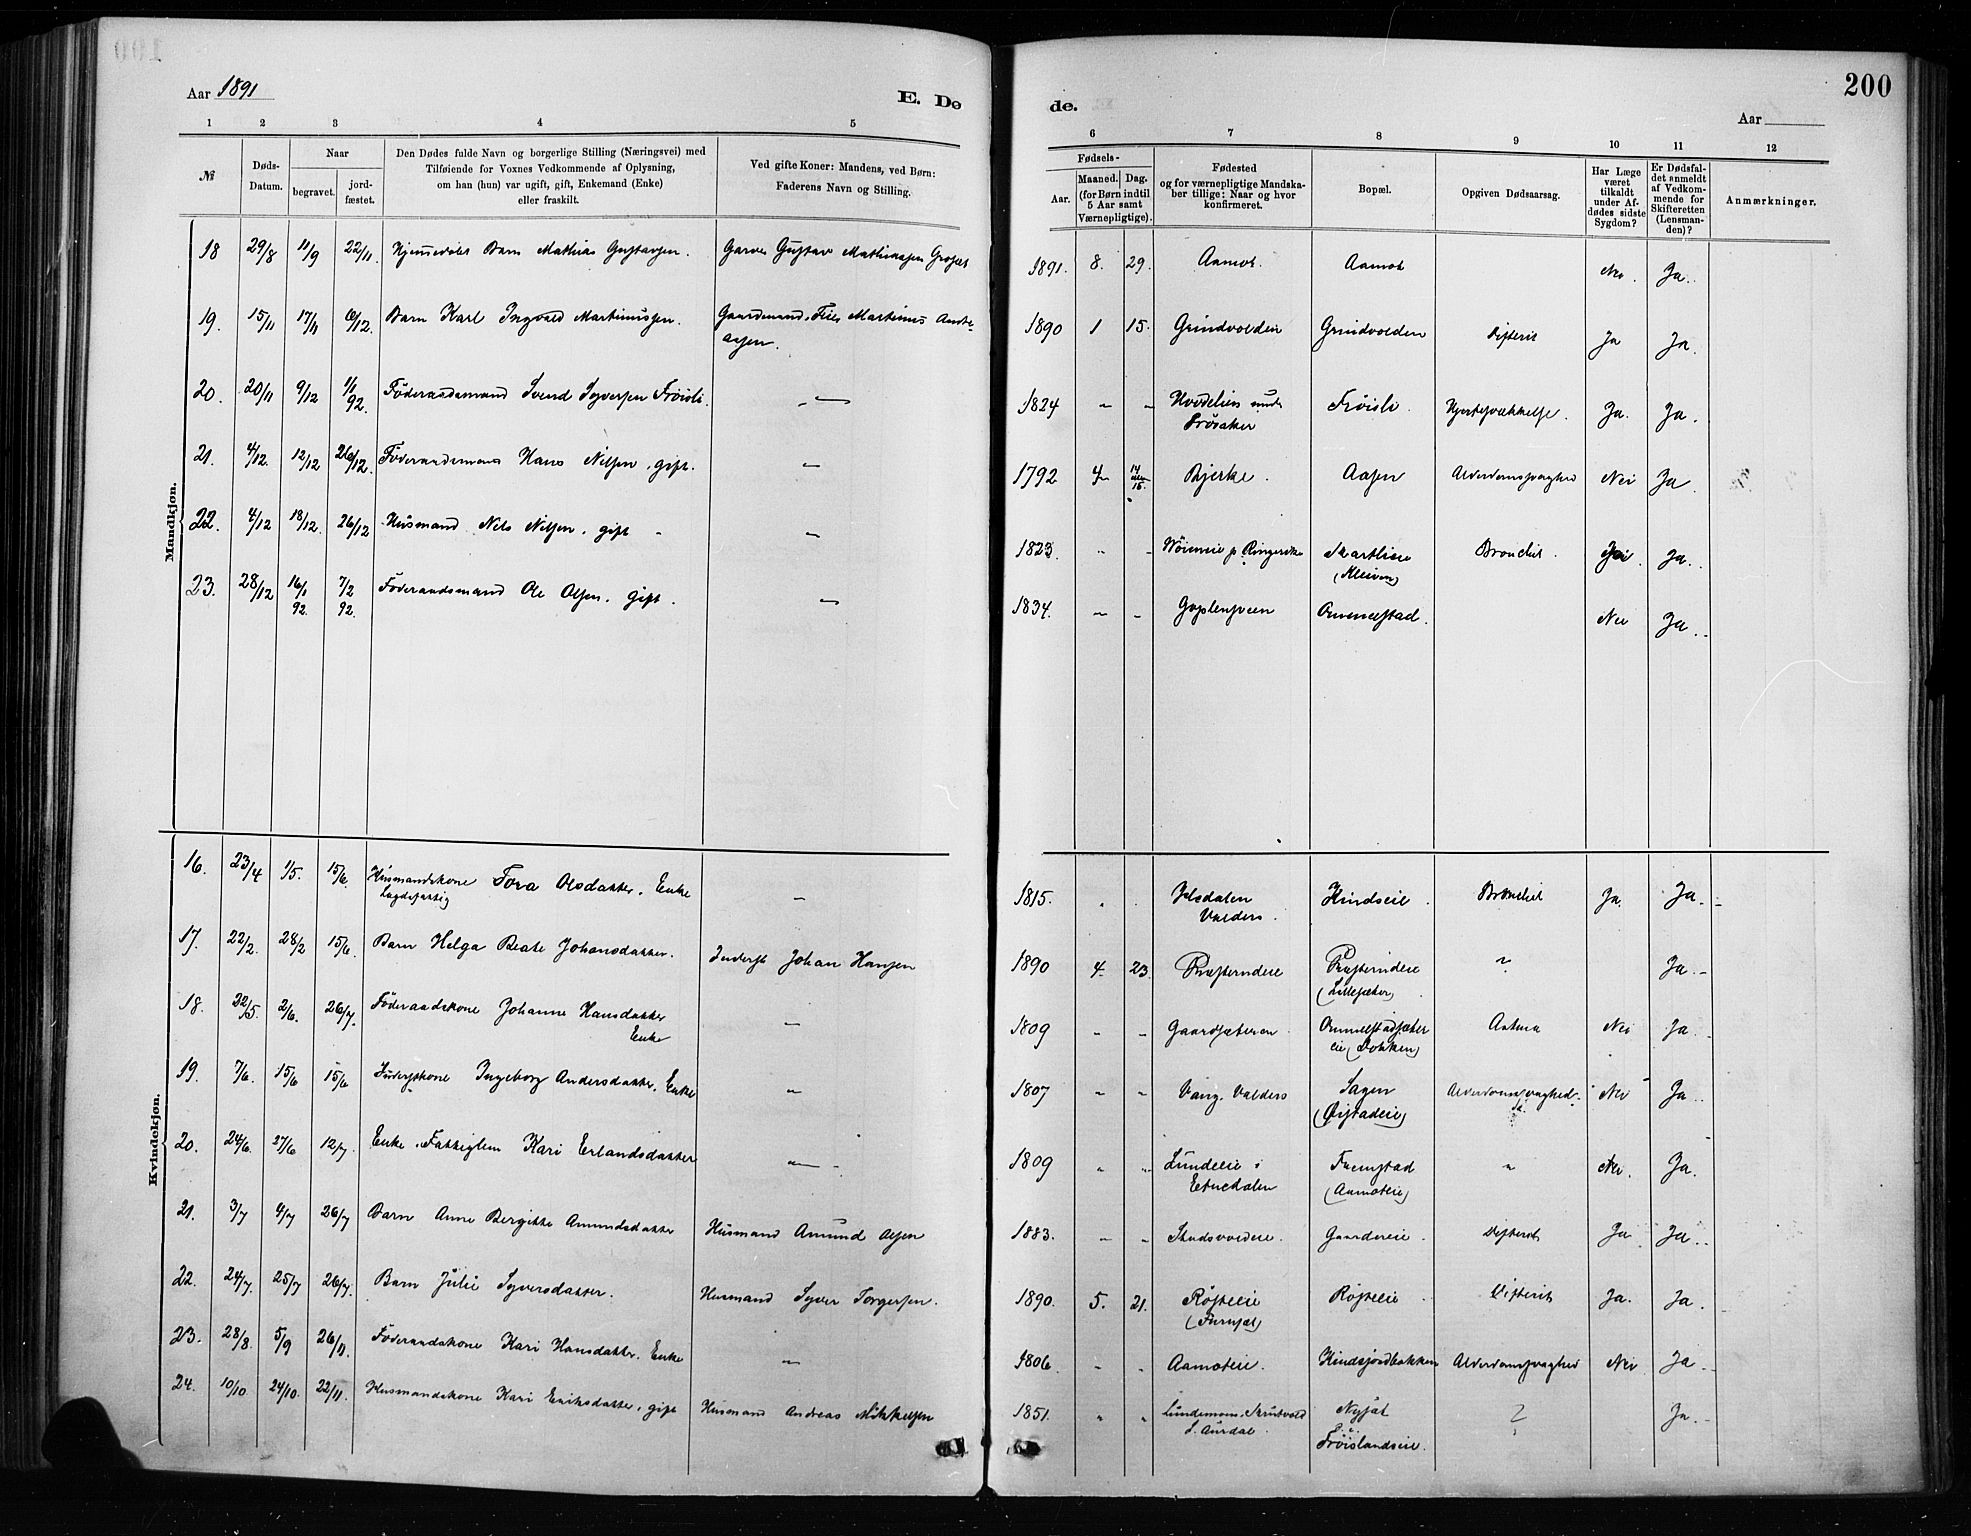 Aar 1891
E. Dø
de.
200
Aar
1 2 3 4 5
6 7 8 9 10 11 12
№
Døds-
Datum.
Naar
begravet.
jord-
fæstet.
Den Dødes fulde Navn og borgerlige Stilling (Næringsvei) med
Tilføiende for Voxnes Vedkommende af Oplysning,
om han (hun) var ugift, gift, Enkemand (Enke)
eller fraskilt.
Ved gifte Koner: Mandens, ved Børn:
Faderens Navn og Stilling.
Fødsels-
Aar.
Maaned.
Dag.
(for Børn indtil
5 Aar samt
Værnepligtige).
Fødested
og for værnepligtige Mandska-
ber tillige: Naar og hvor
konfirmeret.
Bopæl.
Opgiven Dødsaarsag.
Har Læge
været
tilkaldt
under Af-
dødes sidste
Sygdom?
Er Dødsfal-
det anmeldt
af Vedkom-
mende for
Skifteretten
(Lensman-
den)?
Anmærkninger.
Mandkjøn.
18 29/8 11/9 22/11. Hjemmedøbt Barn Mathias Gustavsen. Garver Gustav Mathiassen 1891. 8. 29. Aamot. Aamot Nei. Ja.
19. 15/11 17/11 6/12. Barn Karl Ingvald Martinussen. Gaardmand Martinus Andre-
assen. 1890 1 15. Grindvolden Grindvolden Difterit Ja Ja.
20. 20/11 9/12 1/1
92. Föderaadsmand Svend Syversen Fröisli. — 1824 " " under
Frösaker Fröisli. Ja. Ja.
21. 4/12. 12/12 26/12. Föderaadsmand Hans Nilsen, gift. — 1792 4 14
eller
15. Bjerke. Aasen Alderdomssvaghed Nei Ja.
22. 4/12 18/12. 26/12 Husmand Nels Nilsen, gift — 1823. " " Ringerike Skartlien
(Kleiven) Bronchit. Ja.
23. 28/12 16/1
92. 7/2
92. Föderaadsmand Ole Olsen, gift. — 1834. " " Goplensveen Ommelstad. Nei Ja.
Kvindekjøn.
16. 23/4 1/5. 15/6. Husmandskone Tora Olsdatter. Enke
Lægdsfattig — 1815. " " Valders. Hindseie. Bronchit Ja. Ja.
17. 22/2. 28/2 15/6. Barn Helga Beate Johansdatter. Inderst Johan Hansen 1890 4. 23. Præsterudeie Præsterudeie
(Lillesæter) ? Ja.
18. 22/5. 2/6. 26/7. Föderaadskone Johanne Hansdatter
Enke — 1809 " " Gaardsæteren Ommelstadsæter
eie (Dokken) Astma Nei Ja.
19. 7/6. 15/6 15/6 Inderstkone Ingeborg Andersdatter. Enke " 1807 " " Vang. Valders Sagen
(Øistadeie) Alderdomssvaghed Nei Ja.
20. 24/6. 27/6 12/7. Enke. Fattiglem Kari Erlandsdatter — 1809 " " Lundeeie i
Etnedalen Fremstad
(Aamoteie) " Nei. Ja.
21. 3/7 4/7 26/7 Barn Anne Bergitte Amundsdatter Husmand Amund Olsen 1883. " " Gaardereie. Difterit Ja Ja.
22. 24/7. 25/7 26/7. Barn Julie Syversdatter. Husmand Syver Torgersen. 1890. 5. 21. Røsteeie
(Furusæt) Røsteeie Difterit Ja. Ja.
23. 28/8. 5/9 26/11. Föderaadskone Kari Hansdatter. Enke — 1806. " " Aamoteie. Hindsjordbakken Alderdomssvaghed Nei Ja
24. 10/10. 24/10. 22/11. Husmandskone Kari Eriksdatter, gift Husmand Andreas Mikkelsen 1851. " " Lundemoen, Strutvold
S. Aurdal. Nysæt
Fröislandseie. ? Ja.